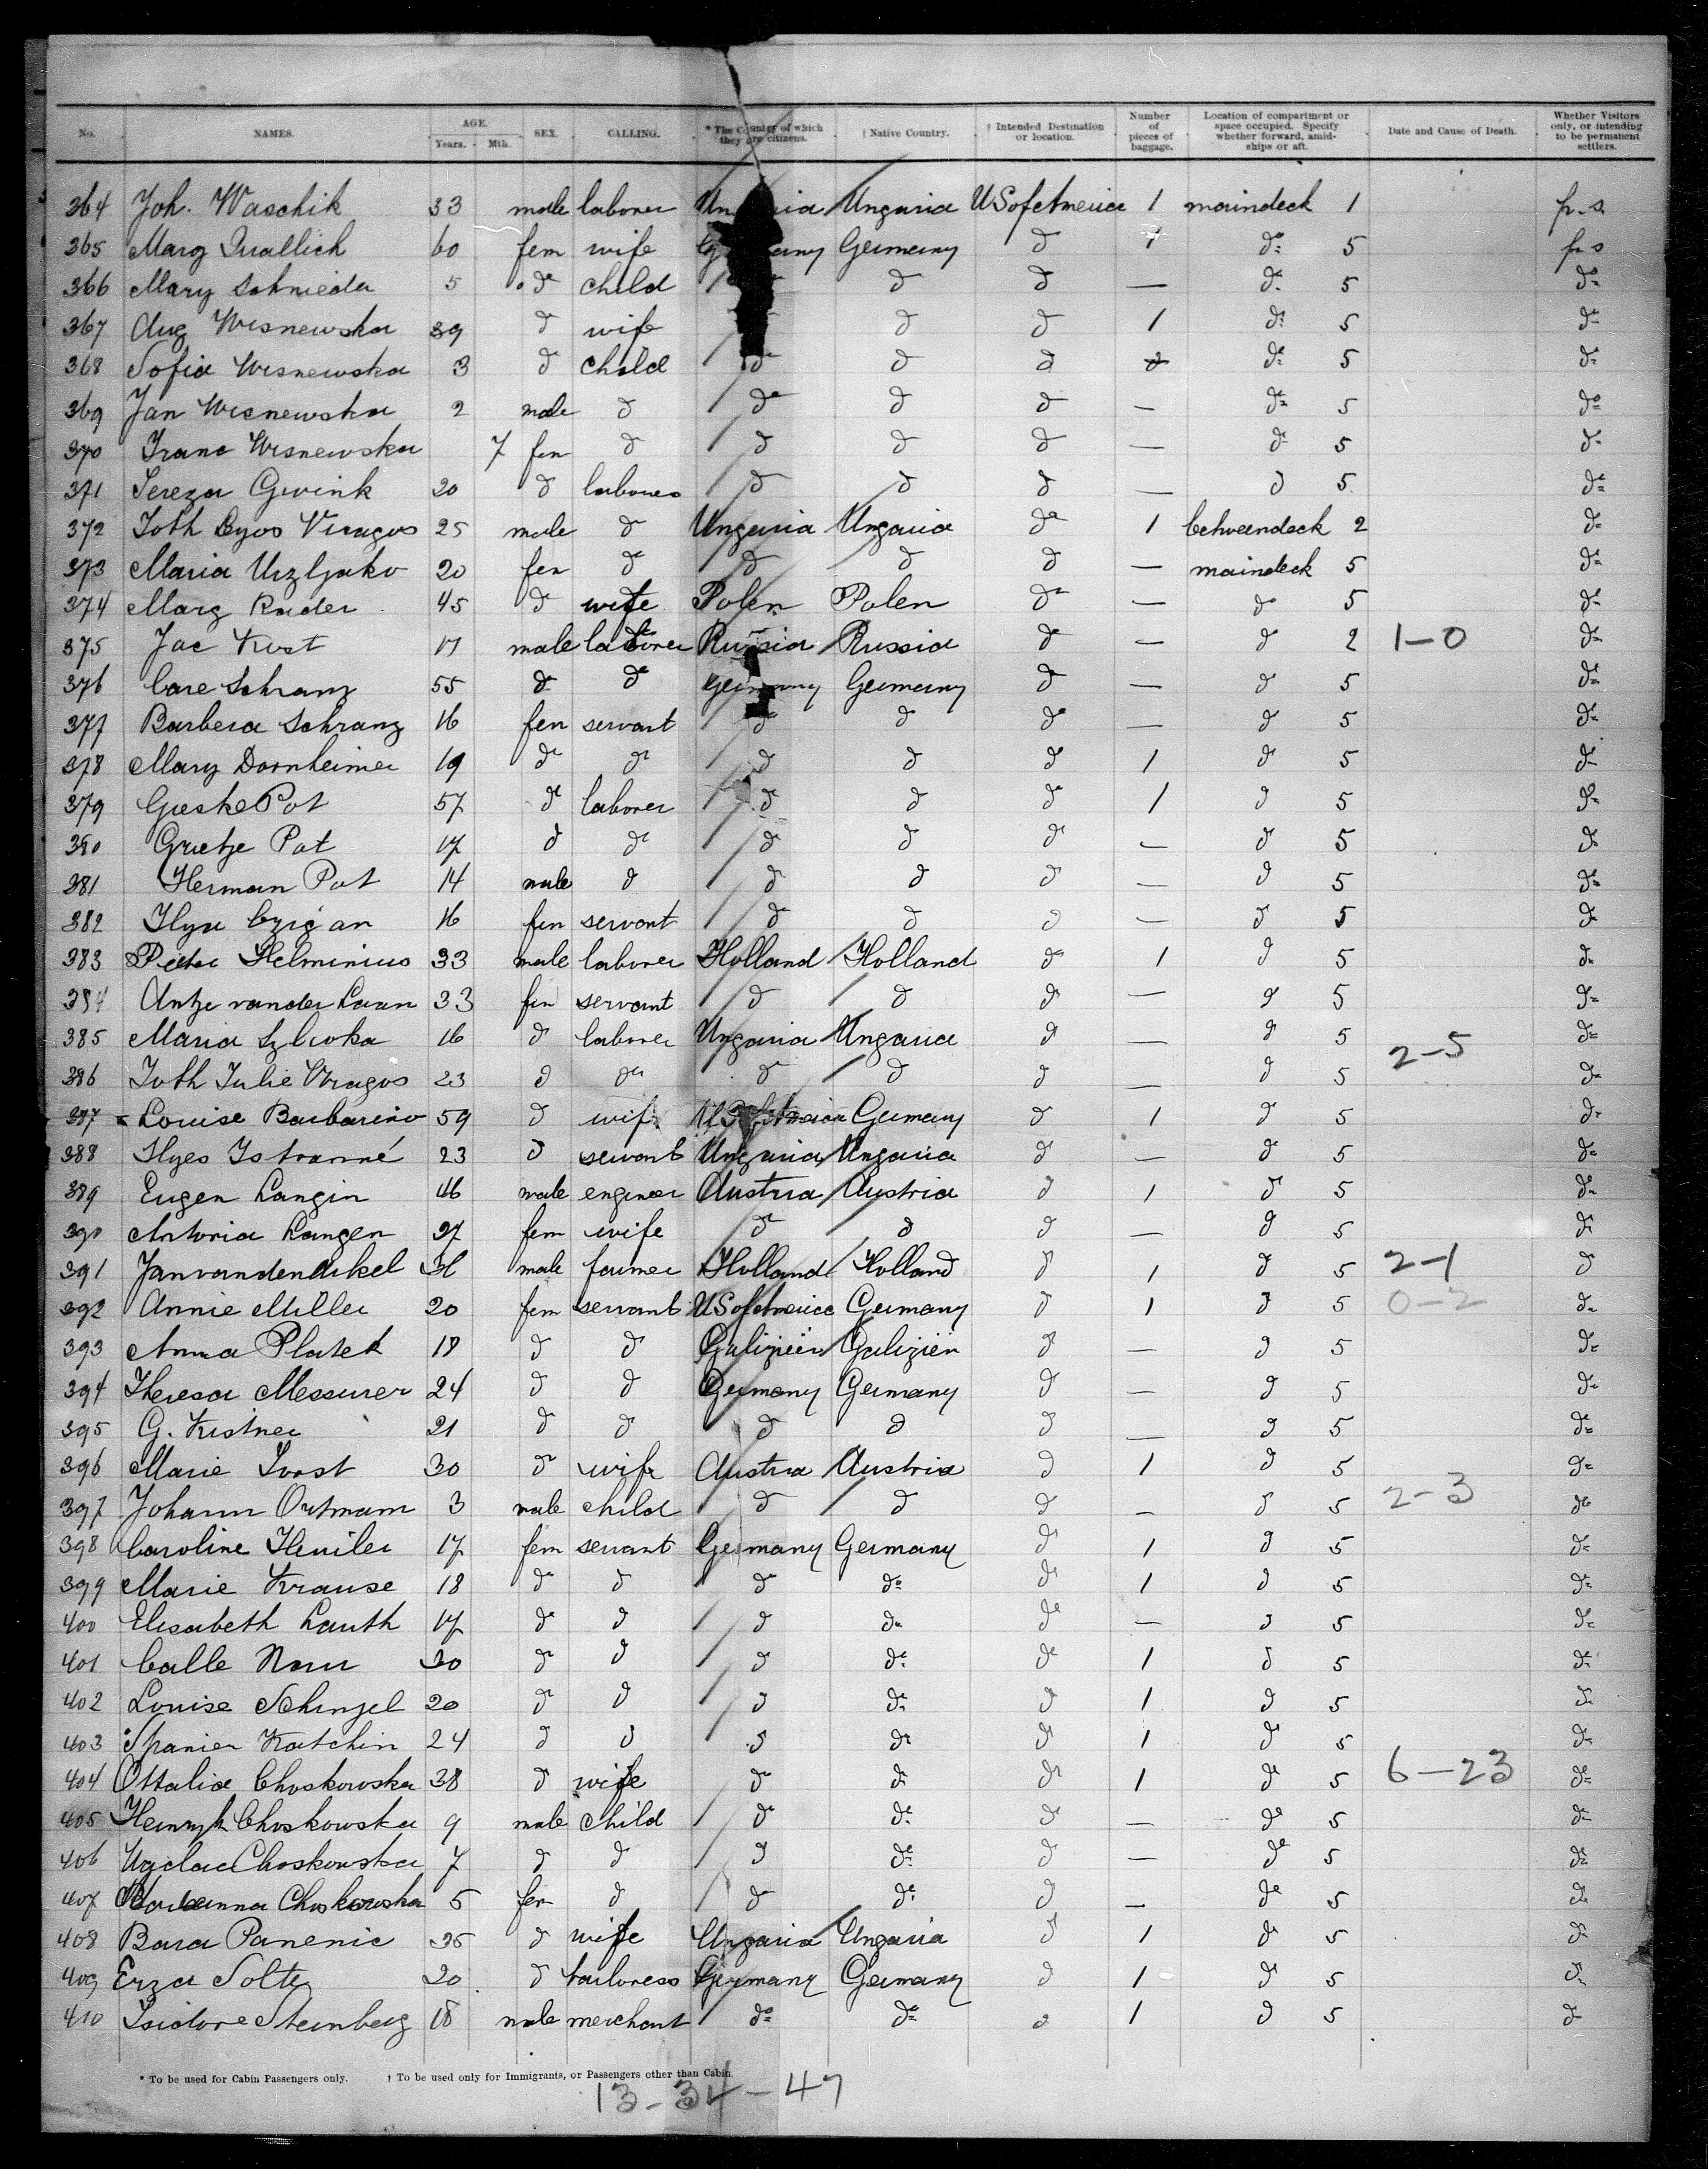 No. NAMES. AGE. Years. Mth. SEX. CALLING. * The Country of which they are citizens. † Native Country. † Intended Destination or location. Number of pieces of baggage. Location of compartment or space occupied. Specify whether forward, amidships or aft. Date and Cause of Death. Whether Visitors only, or intending to be permanent settlers.
364 Joh. Waschik 33 male laborer Ungaria Ungaria USofAmerica 1 maindeck 1 p.s.
365 Marg Quallich 60 fem wife Germany Germany do 1 do 5 p.s
366 Mary Schnieda 5 do child do do — do 5 do
367 Aug Wisnewska 39 do wife do do 1 do 5 do
368 Sofia Wisnewska 3 do child do do do do 5 do
369 Jan Wisnewska 2 male do do do do — do 5 do
370 Franc Wisnewska 7 fem do do do do — do 5 do
371 Tereza Gwink 20 do laborer do do do — do 5 do
372 Toth Viragos 25 male do Ungaria Ungaria do 1 betweendeck 2 do
373 Maria 20 fem do do do do — maindeck 5 do
374 Marg Rader 45 do wife Polen Polen do — do 5 do
375 Jac Kust 17 male laborer Russia Russia do — do 2 1-0 do
376 Care Schranz 55 do do Germany Germany do — do 5 do
377 Barbera Schranz 16 fem servant do do do — do 5 do
378 Mary Dornheimer 19 do do do do do 1 do 5 do
379 Geeske Pot 57 do laborer do do do 1 do 5 do
380 Grietje Pot 17 do do do do do — do 5 do
381 Herman Pot 14 male do do do do — do 5 do
382 Ilyu Czigan 16 fem servant do do do — do 5 do
383 Pieter Helminius 33 male laborer Holland Holland do 1 do 5 do
384 Antje vander Laan 33 fem servant do do do — do 5 do
385 Maria 16 do laborer Ungaria Ungaria do — do 5 2-5 do
386 Toth Julie Viragos 23 do do do do do — do 5 do
387 Louise Barbarino 59 do wife USofAmerica Germany do 1 do 5 do
388 Ilyes Istvanné 23 do servant Ungaria Ungaria do — do 5 do
389 Eugen Langin 46 male engineer Austria Austria do 1 do 5 do
390 Antonia Langen 27 fem wife do do do — do 5 do
391 Jan vanden Arkel 36 male farmer Holland Holland do 1 do 5 2-1 do
392 Annie Miller 20 fem servant USofAmerica Germany do 1 do 5 0-2 do
393 Anna Platek 18 do do Galizien Galizien do — do 5 do
394 Theresa Messurer 24 do do Germany Germany do — do 5 do
395 G. Kistner 21 do do do do do — do 5 do
396 Marie Trost 30 do wife Austria Austria do 1 do 5 do
397 Johann Ortmann 3 male child do do do — do 5 2-3 do
398 Caroline Heuiler 17 fem servant Germany Germany do 1 do 5 do
399 Marie Krause 18 do do do do do 1 do 5 do
400 Elisabeth Lauth 17 do do do do do — do 5 do
401 Calle Nau 20 do do do do do 1 do 5 do
402 Louise Schinzel 20 do do do do do 1 do 5 do
403 Spanier Katchin 24 do do do do do 1 do 5 do
404 Ottalia Choskowska 38 do wife do do do 1 do 5 6-23 do
405 Henryk Choskowska 9 male child do do do — do 5 do
406 Choskowska 7 do do do do do — do 5 do
407 Choskowska 5 fem do do do do — do 5 do
408 Bara Panenic 25 do wife Ungaria Ungaria do 1 do 5 do
409 Erza Solte 20 do tailoress Germany Germany do 1 do 5 do
410 Isidore Steinberg 18 male merchant do do do 1 do 5 do
* To be used for Cabin Passengers only. † To be used only for Immigrants, or Passengers other than Cabin.
13-34-47